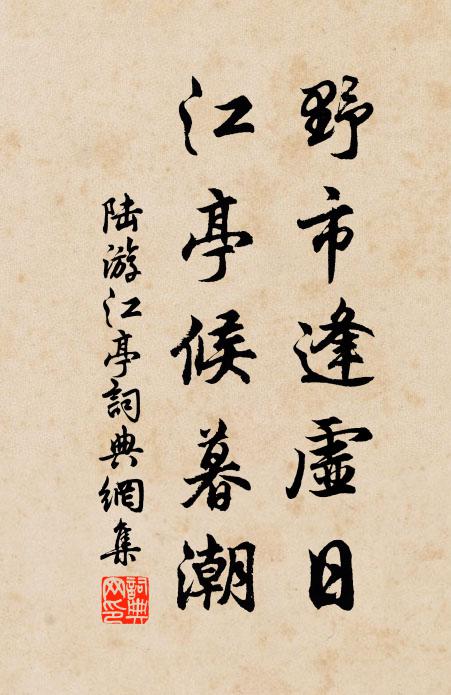 野市逢虛日
江亭候暮潮
陸游江亭詞典網集
詞典網印